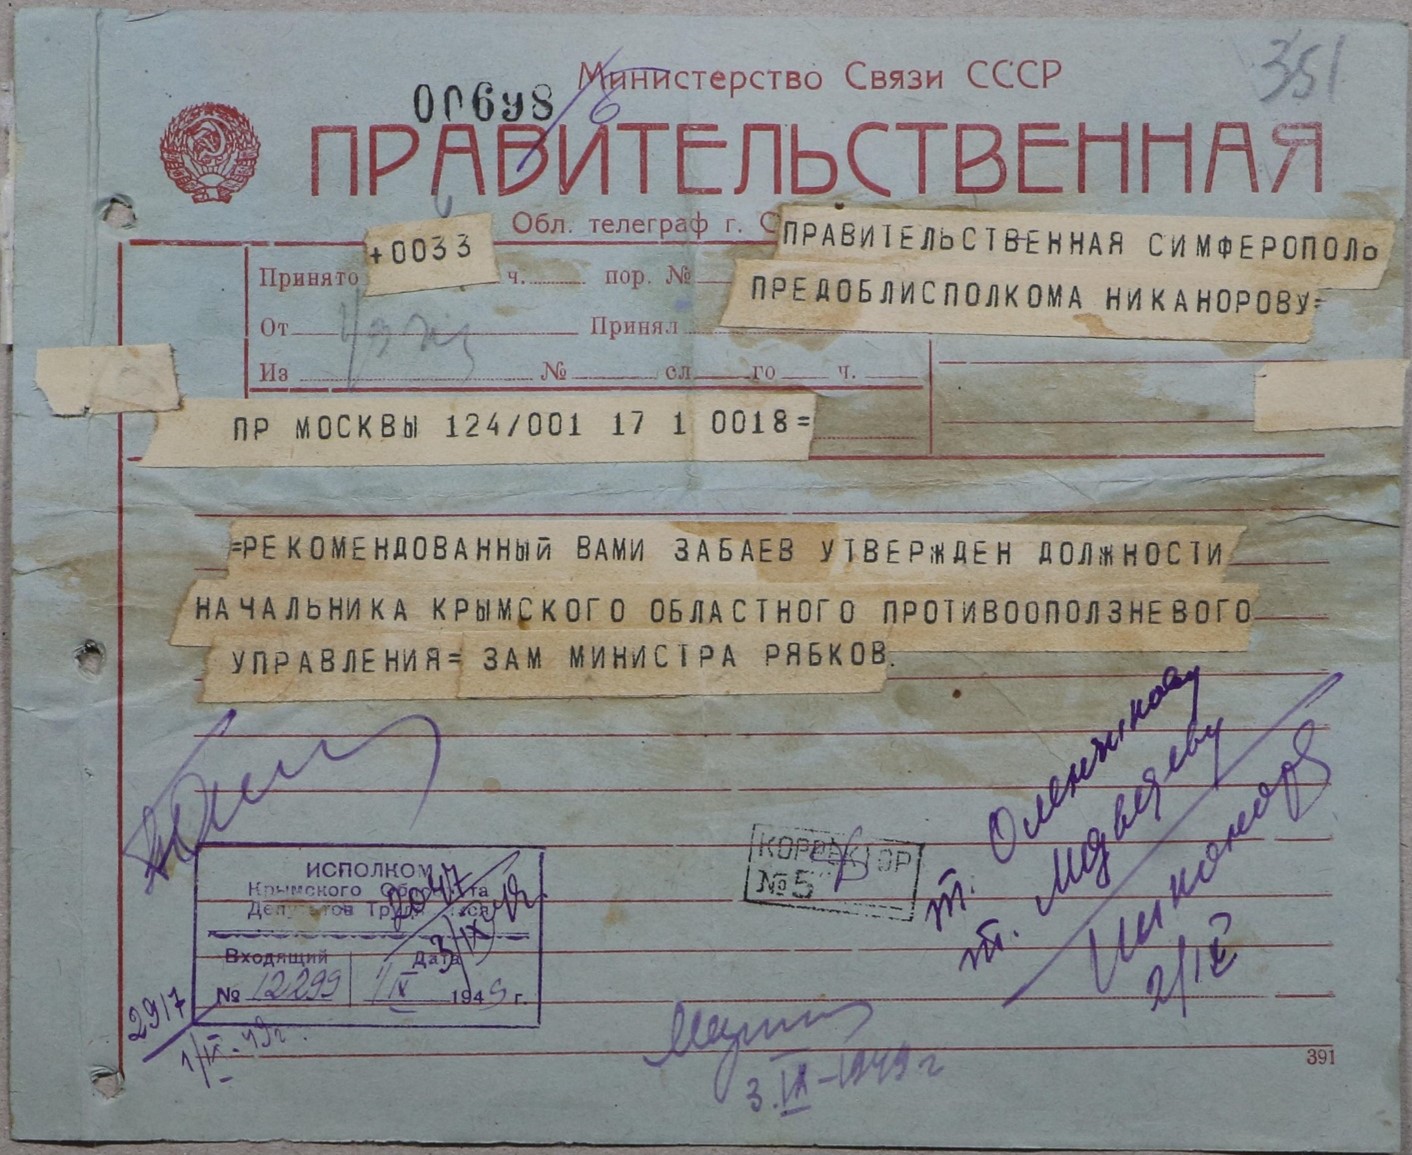 351
00698/6
Министерство Связи СССР
ПРАВИТЕЛЬСТВЕННАЯ
Обл. телеграф г. С
ПРАВИТЕЛЬСТВЕННАЯ СИМФЕРОПОЛЬ
ПРЕДОБЛИСПОЛКОМА НИКАНОРОВУ=
Принято +0033 ч. пор. №
От Принял
Из № сл го ч.
ПР МОСКВЫ 124/001 17 1 0018=
=РЕКОМЕНДОВАННЫЙ ВАМИ ЗАБАЕВ УТВЕРЖДЕН ДОЛЖНОСТИ
НАЧАЛЬНИКА КРЫМСКОГО ОБЛАСТНОГО ПРОТИВООПОЛЗНЕВОГО
УПРАВЛЕНИЯ= ЗАМ МИНИСТРА РЯБКОВ.
т. Оленчикову
т. Медведеву
Никаноров
2/IX
КОРРЕКТОР
№ 5
ИСПОЛКОМ
Крымского Облсовета
Депутатов Трудящихся
2047
3/IX
Входящий Дата
№ 12299 1/IX 1949 г.
2917
1/IX-49г.
3.IX-1949 г
391